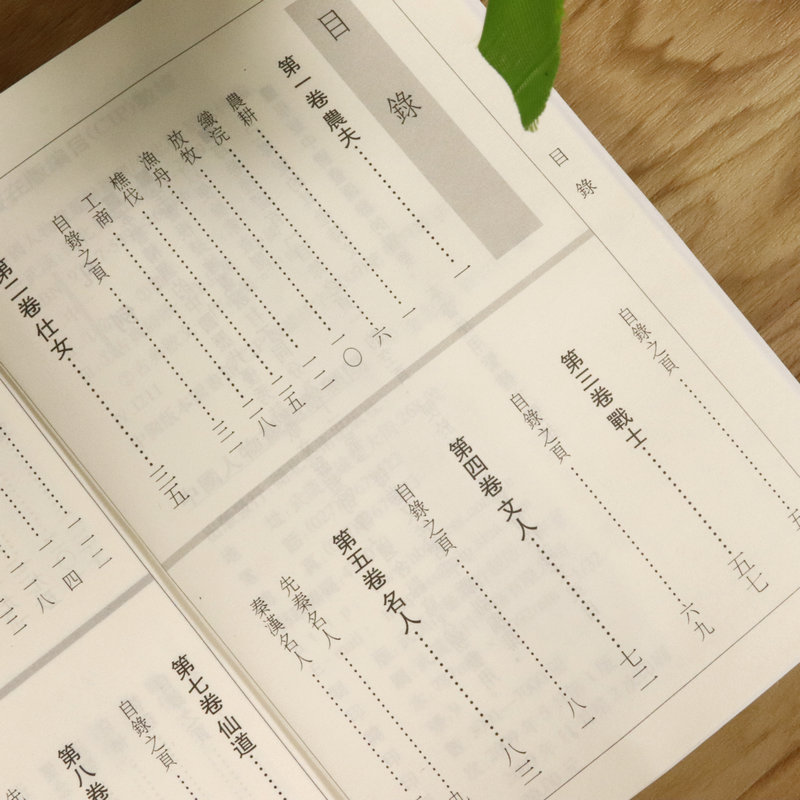 目錄
目錄
第一卷農夫……一
農耕……一
織浣……六
放牧……一〇
漁舟……二一
樵伐……二五
工商……二八
自錄之頁……三一
第二卷仕女……三五
自錄之頁……五
第三卷戰士……五七
自錄之頁……六九
第四卷文人……七二
自錄之頁……八一
第五卷名人……八三
先秦名人……九
秦漢名人……
第七卷仙道……
自錄之頁……
第八卷
先